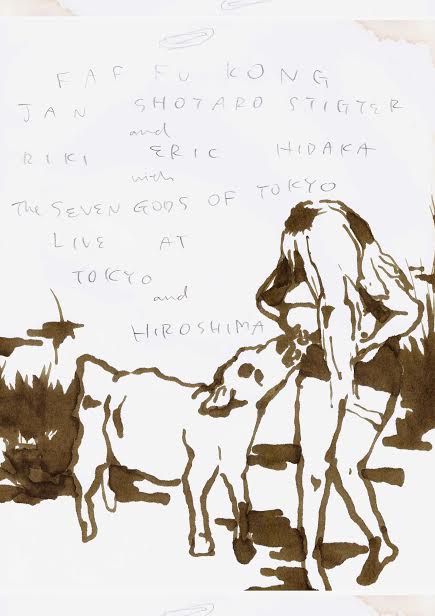 FAF FU KONG
JAN SHOTARO STIGTER
and
RIKI ERIC HIDAKA
with
The SEVEN GODS OF TOKYO
LIVE AT
TOKYO
and
HIROSHIMA